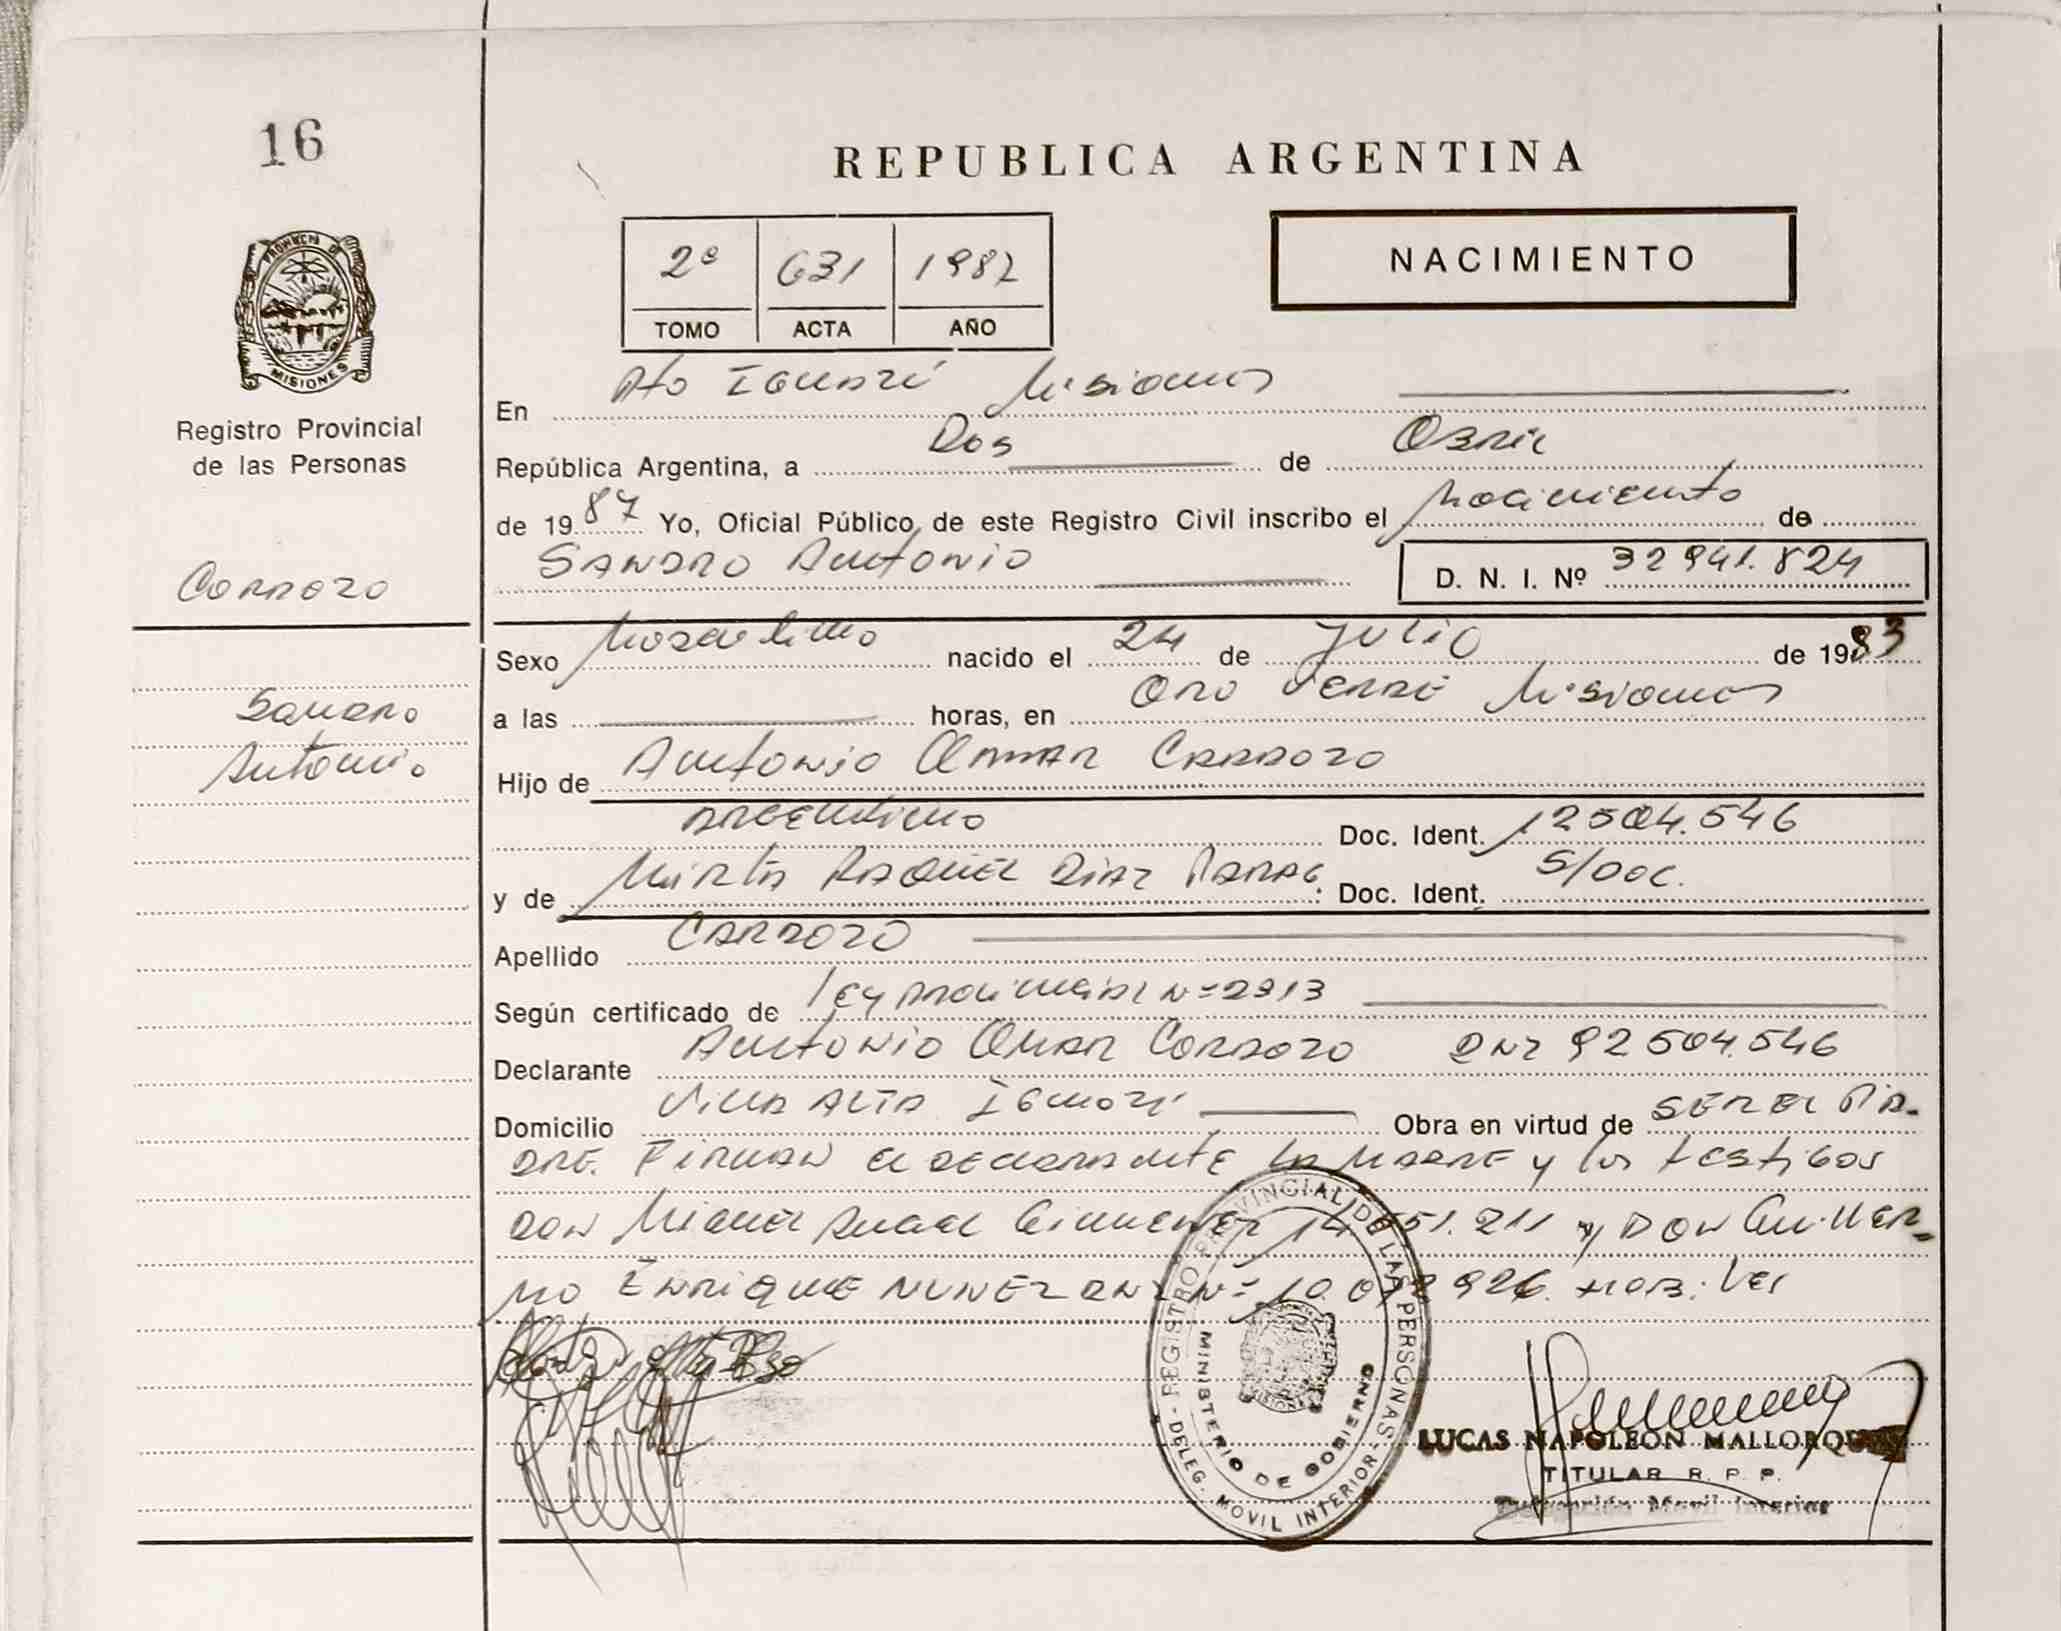 16
REPUBLICA ARGENTINA
2º 631 1987
TOMO ACTA AÑO
NACIMIENTO
PROVINCIA DE
MISIONES
Registro Provincial
de las Personas
En Pto Iguazú Misiones
República Argentina, a Dos de Abril
de 1987 Yo, Oficial Público de este Registro Civil inscribo el Nacimiento de
SANDRO ANTONIO D. N. I. Nº 32941.824
Cardozo
Sandro
Antonio
Sexo Masculino nacido el 24 de Julio de 1983
a las horas, en Oro Verde Misiones
Hijo de Antonio Omar Cardozo
Argentino Doc. Ident. 12504.546
y de Mirta Raquel Diaz Doc. Ident. S/Doc.
Apellido CARDOZO
Según certificado de Ley Provincial Nº 2913
Declarante Antonio Omar Cardozo DNI 92504.546
Domicilio Villa Alta Iguazú Obra en virtud de SER EL PA-
DRE. Firman el declarante la madre y los testigos
DON Miguel Angel Gimenez 14 51.211 y DON Guiller-
mo Enrique NUNEZ DNI Nº 10.0 926.
REGISTRO PROVINCIAL DE LAS PERSONAS
MINISTERIO DE GOBIERNO
DELEG. MOVIL INTERIOR
LUCAS NAPOLEON
TITULAR R. P. P.
Delegación Movil Interior